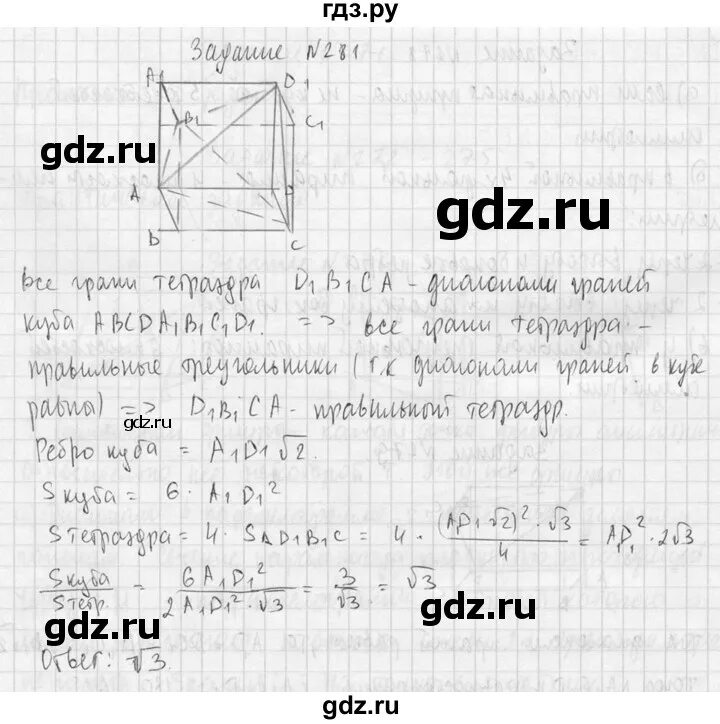 гдз.ру
Задание №281
A1
D1
B1
C1
A
D
B
C
gdz.ru
gdz.ru
Все грани тетраэдра D1B1CA - диагонали граней
куба ABCDA1B1C1D1. => все грани тетраэдра -
правильные треугольники (т.к диагонали граней в кубе
равны) => D1B1CA - правильный тетраэдр.
gdz.ru
Ребро куба = A1D1√2.
gdz.ru
S куба = 6 · A1D1²
Sтетраэдра = 4 · SAD1B1C = 4 · (AD1√2)² · √3 / 4 = AD1² · 2√3
gdz.ru
Sкуба / Sтетр. = 6A1D1² / 2A1D1² · √3 = 3 / √3 = √3
gdz.ru
Ответ: √3.
gdz.ru
gdz.ru